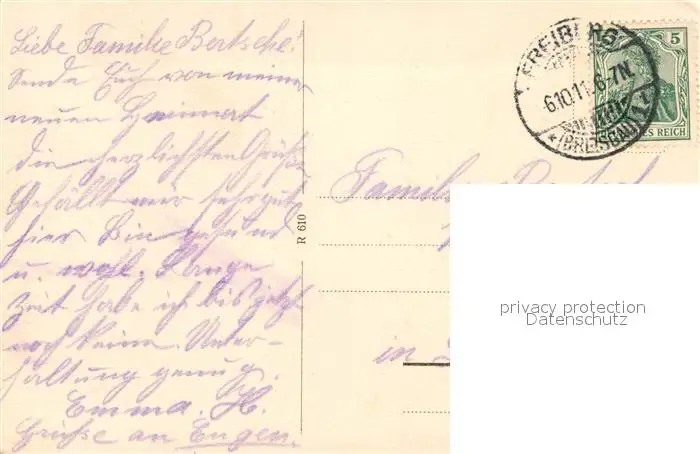 Liebe Familie Bertsche!
Sende Euch von meiner
neuen Heimat
die herzlichsten Grüße
Gefällt mir sehr gut
hier. Bin gesund
u. wohl. Lange
Zeit habe ich bis jetzt
noch keine. Unter-
haltung genug.
Emma. H.
Grüsse an Eugen.
R 610
FREIBURG
6.10.11. 6-7N.
(BREISGAU)
5
REICH
Familie
in
privacy protection
Datenschutz